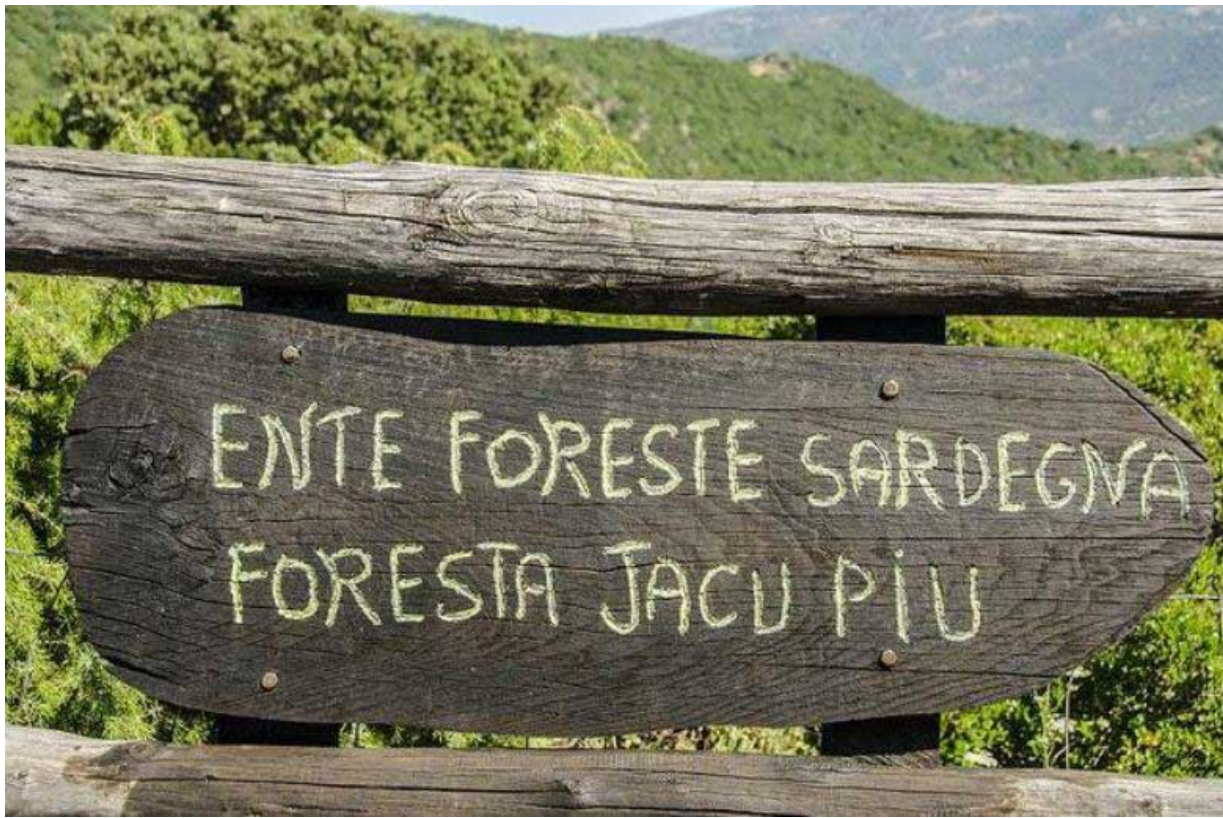 ENTE FORESTE SARDEGNA
FORESTA JACU PiU